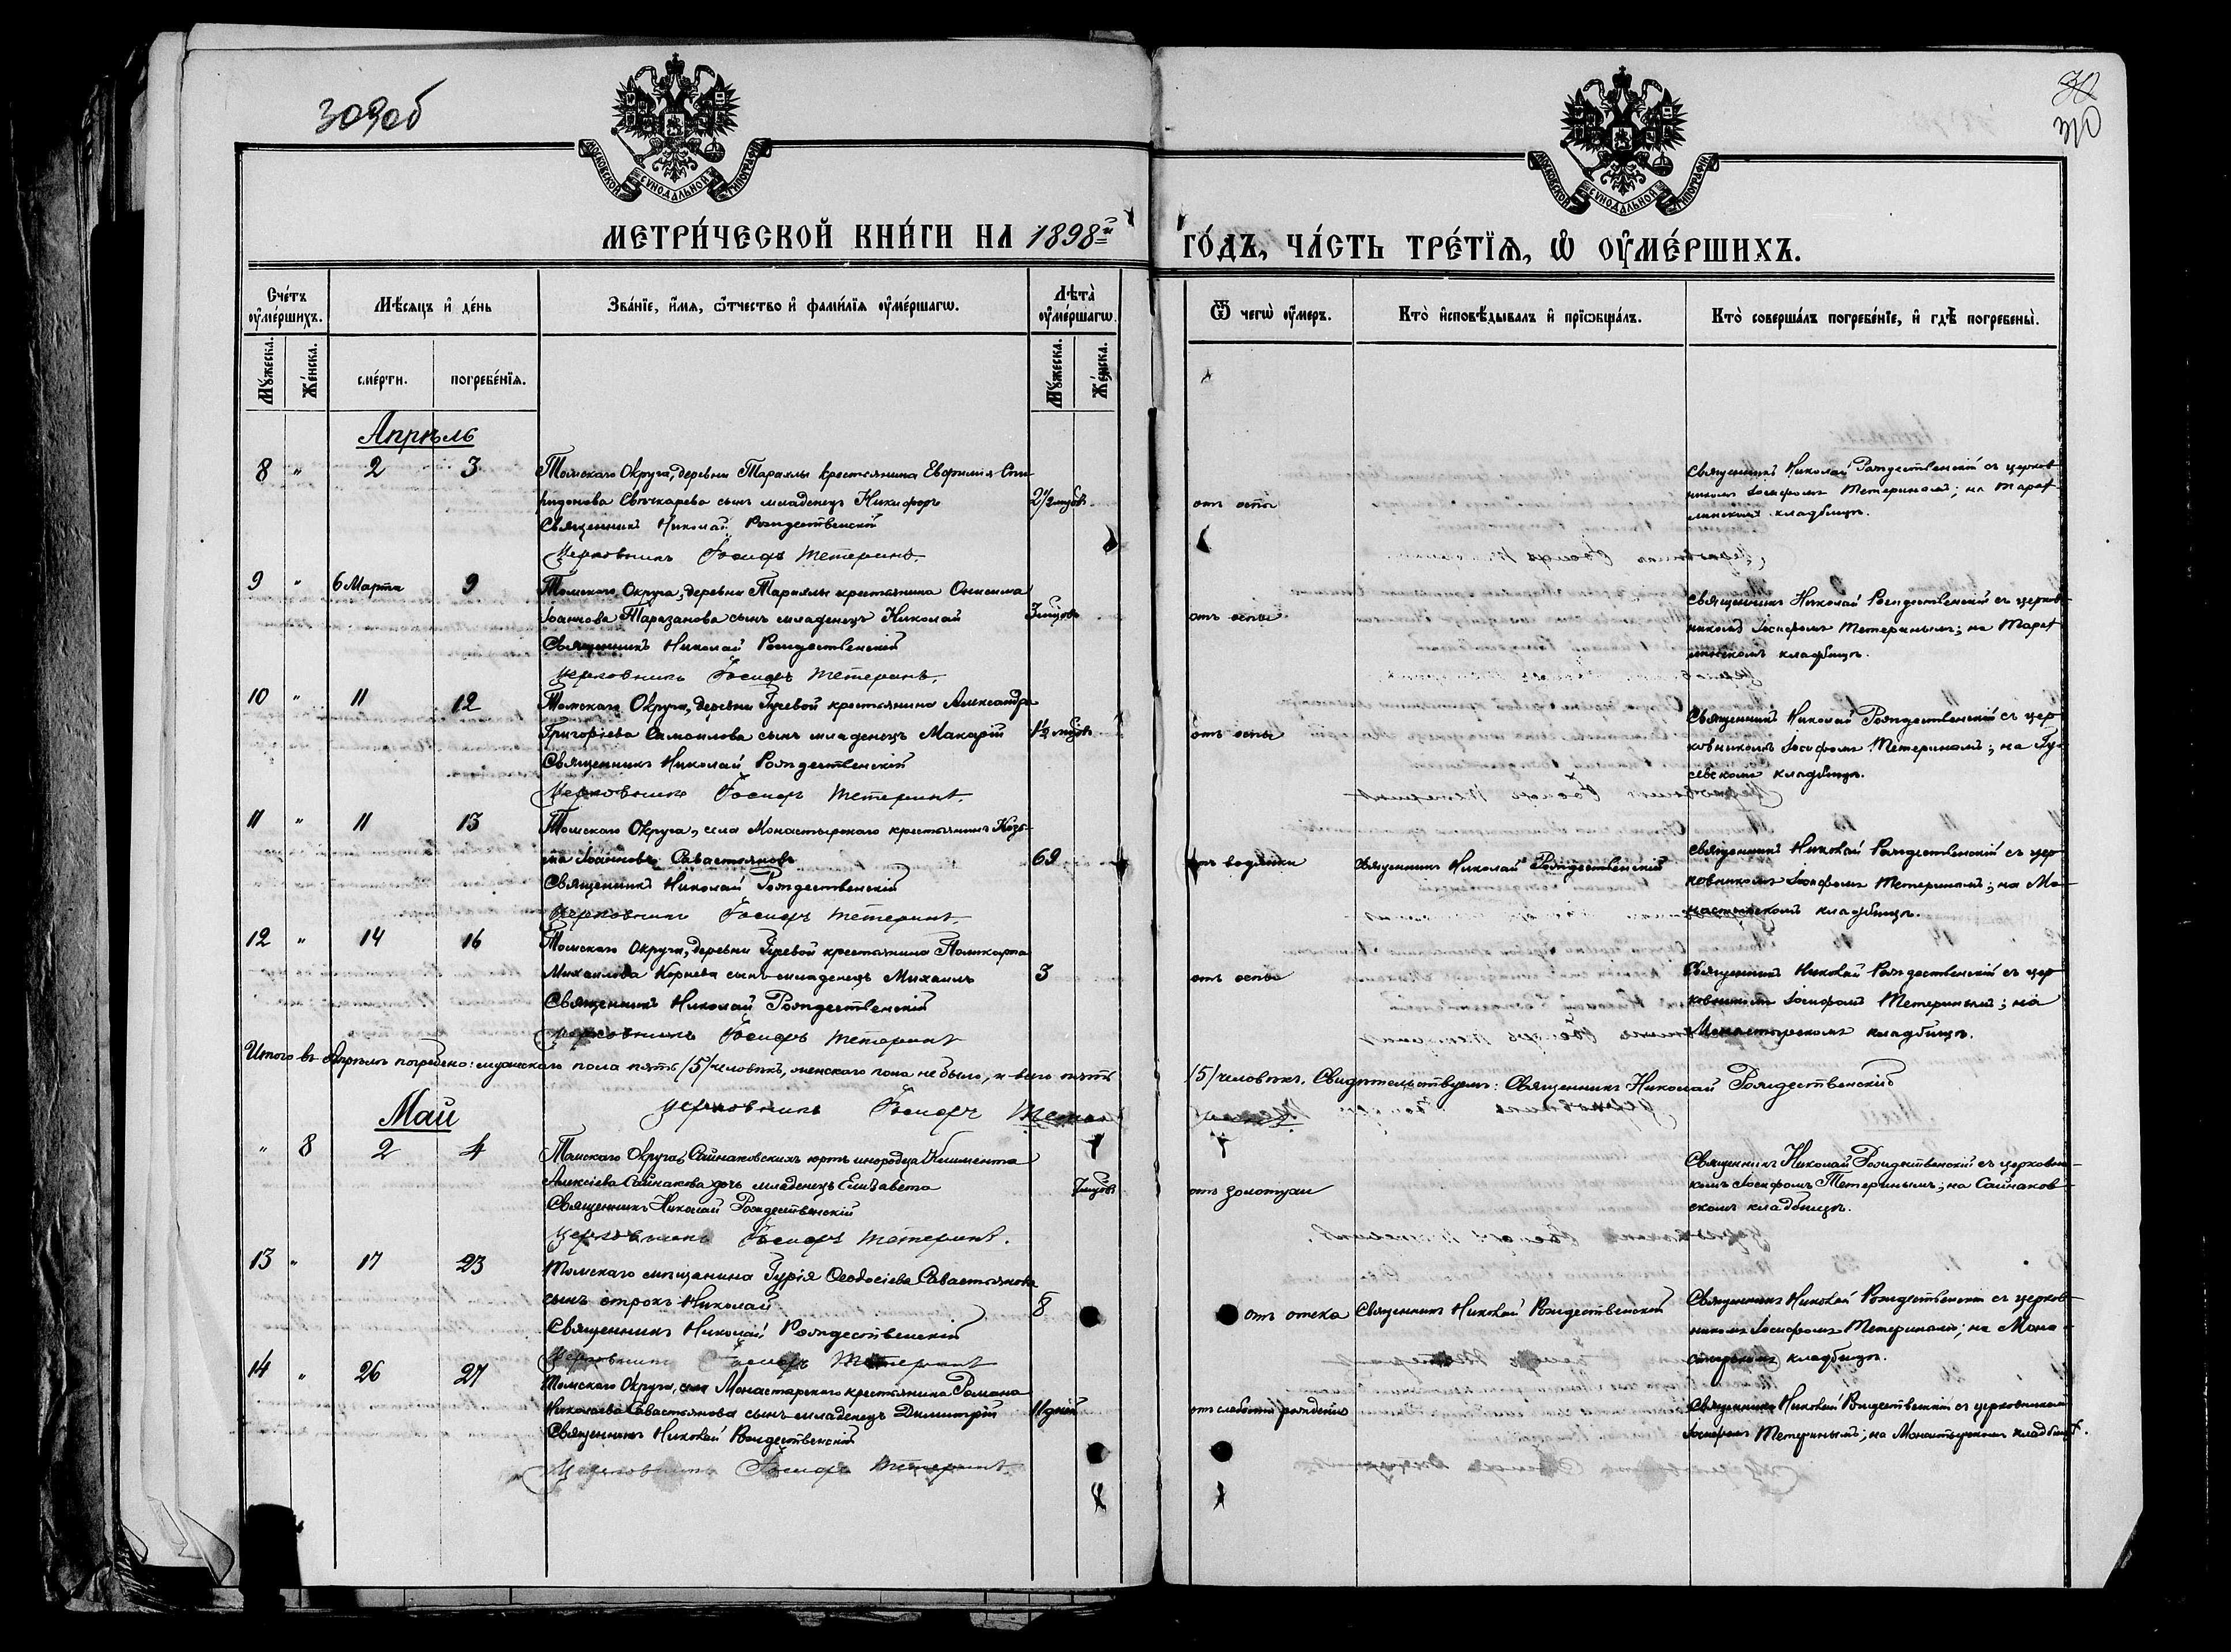 309об
310
МОСКОВСКОЙ СѴНОДАЛЬНОЙ ТИПОГРАФІИ
МОСКОВСКОЙ СѴНОДАЛЬНОЙ ТИПОГРАФІИ
МЕТРИ́ЧЕСКОЙ КНИ́ГИ НА 1898й ГО́ДЪ, ЧА́СТЬ ТРЕ́ТІѦ, Ѡ ОУМЕ́РШИХЪ.
Сче́тъ оумершихъ.
Мѣсѧцъ и де́нь
Зва́нїе, и́мѧ, ѻтчество и фами́лїѧ оуме́ршагѡ.
Лѣта̀ оуме́ршагѡ.
Ѿ чегѡ̀ оу́меръ.
Кто̀ исповѣ́дывалъ и прїѡбща́лъ.
Кто̀ соверша́лъ погребе́нїе, и гдѣ̀ погребены̀.
Мꙋжеска.
Же́нска.
сме́рти.
погребе́нїѧ.
Мꙋжеска.
Же́нска.
Апрѣль
8 " 2 3 Томскаго Округа, деревни Тараклы крестьянина Евфимія Спи-
ридонова Свѣчкарева сынъ младенецъ Никифоръ 2 1/2 мѣсяц.
Священникъ Николай Рождественскій
Церковникъ Іосифъ Тетеринъ.
отъ оспы
Священникъ Николай Рождественскій съ церков-
никомъ Іосифомъ Тетеринымъ; на Тарак-
линскомъ кладбищѣ.
9 " 6 Марта 9 Томскаго Округа, деревни Тараклы крестьянина
Іоаннова Таразанова сынъ младенецъ Николай 7 мѣсяц.
Священникъ Николай Рождественскій
Церковникъ Іосифъ Тетеринъ.
отъ оспы
Священникъ Николай Рождественскій съ церков-
никомъ Іосифомъ Тетеринымъ; на Тарак-
линскомъ кладбищѣ.
10 " 11 12 Томскаго Округа, деревни Гусевой крестьянина Александра
Григоріева Самоилова сынъ младенецъ Макарій
Священникъ Николай Рождественскій
Церковникъ Іосифъ Тетеринъ.
отъ оспы
Священникъ Николай Рождественскій съ цер-
ковникомъ Іосифомъ Тетеринымъ; на Гу-
севскомъ кладбищѣ.
11 " 11 13 Томскаго Округа, села Монастырскаго крестьянинъ Козь-
ма Іоанновъ Савастьяновъ 69
Священникъ Николай Рождественскій
Церковникъ Іосифъ Тетеринъ.
отъ водянки
Священникъ Николай Рождественскій
Священникъ Николай Рождественскій съ цер-
ковникомъ Іосифомъ Тетеринымъ; на Мо-
настырскомъ кладбищѣ.
12 " 14 16 Томскаго Округа, деревни Гусевой крестьянина Поликарпа
Михаилова Корнева сынъ младенецъ Михаилъ 3
Священникъ Николай Рождественскій
Церковникъ Іосифъ Тетеринъ
отъ оспы
Священникъ Николай Рождественскій съ цер-
ковникомъ Іосифомъ Тетеринымъ; на
Монастырскомъ кладбищѣ.
Итого въ Апрѣлѣ погребено: мужескаго пола пять /5/ человѣкъ, женскаго пола не было, а всего пять /5/ человѣкъ. Свидѣтельствуемъ: Священникъ Николай Рождественскій
Церковникъ Іосифъ Тетеринъ.
Май
" 8 2 4 Томскаго Округа, Сайнаковскихъ юртъ инородца Климента
Алексіева Сайнакова дочь младенецъ Елизавета 7 мѣсяц.
Священникъ Николай Рождественскій
Церковникъ Іосифъ Тетеринъ.
отъ золотухи
Священникъ Николай Рождественскій съ церковни-
комъ Іосифомъ Тетеринымъ; на Сайнаков-
скомъ кладбищѣ.
13 " 17 23 Томскаго мѣщанина Гурія Ѳеодосіева Савастьянова
сынъ отрокъ Николай 8
Священникъ Николай Рождественскій
Церковникъ Іосифъ Тетеринъ
отъ отека
Священникъ Николай Рождественскій
Священникъ Николай Рождественскій съ церков-
никомъ Іосифомъ Тетеринымъ; на Мона-
стырскомъ кладбищѣ.
14 " 26 27 Томскаго Округа, села Монастырскаго крестьянина Романа
Николаева Савастьянова сынъ младенецъ Димитрій 11 дней
Священникъ Николай Рождественскій
Церковникъ Іосифъ Тетеринъ.
отъ слабости рожденія
Священникъ Николай Рождественскій съ церковникомъ
Іосифомъ Тетеринымъ; на Монастырскомъ кладбищѣ.